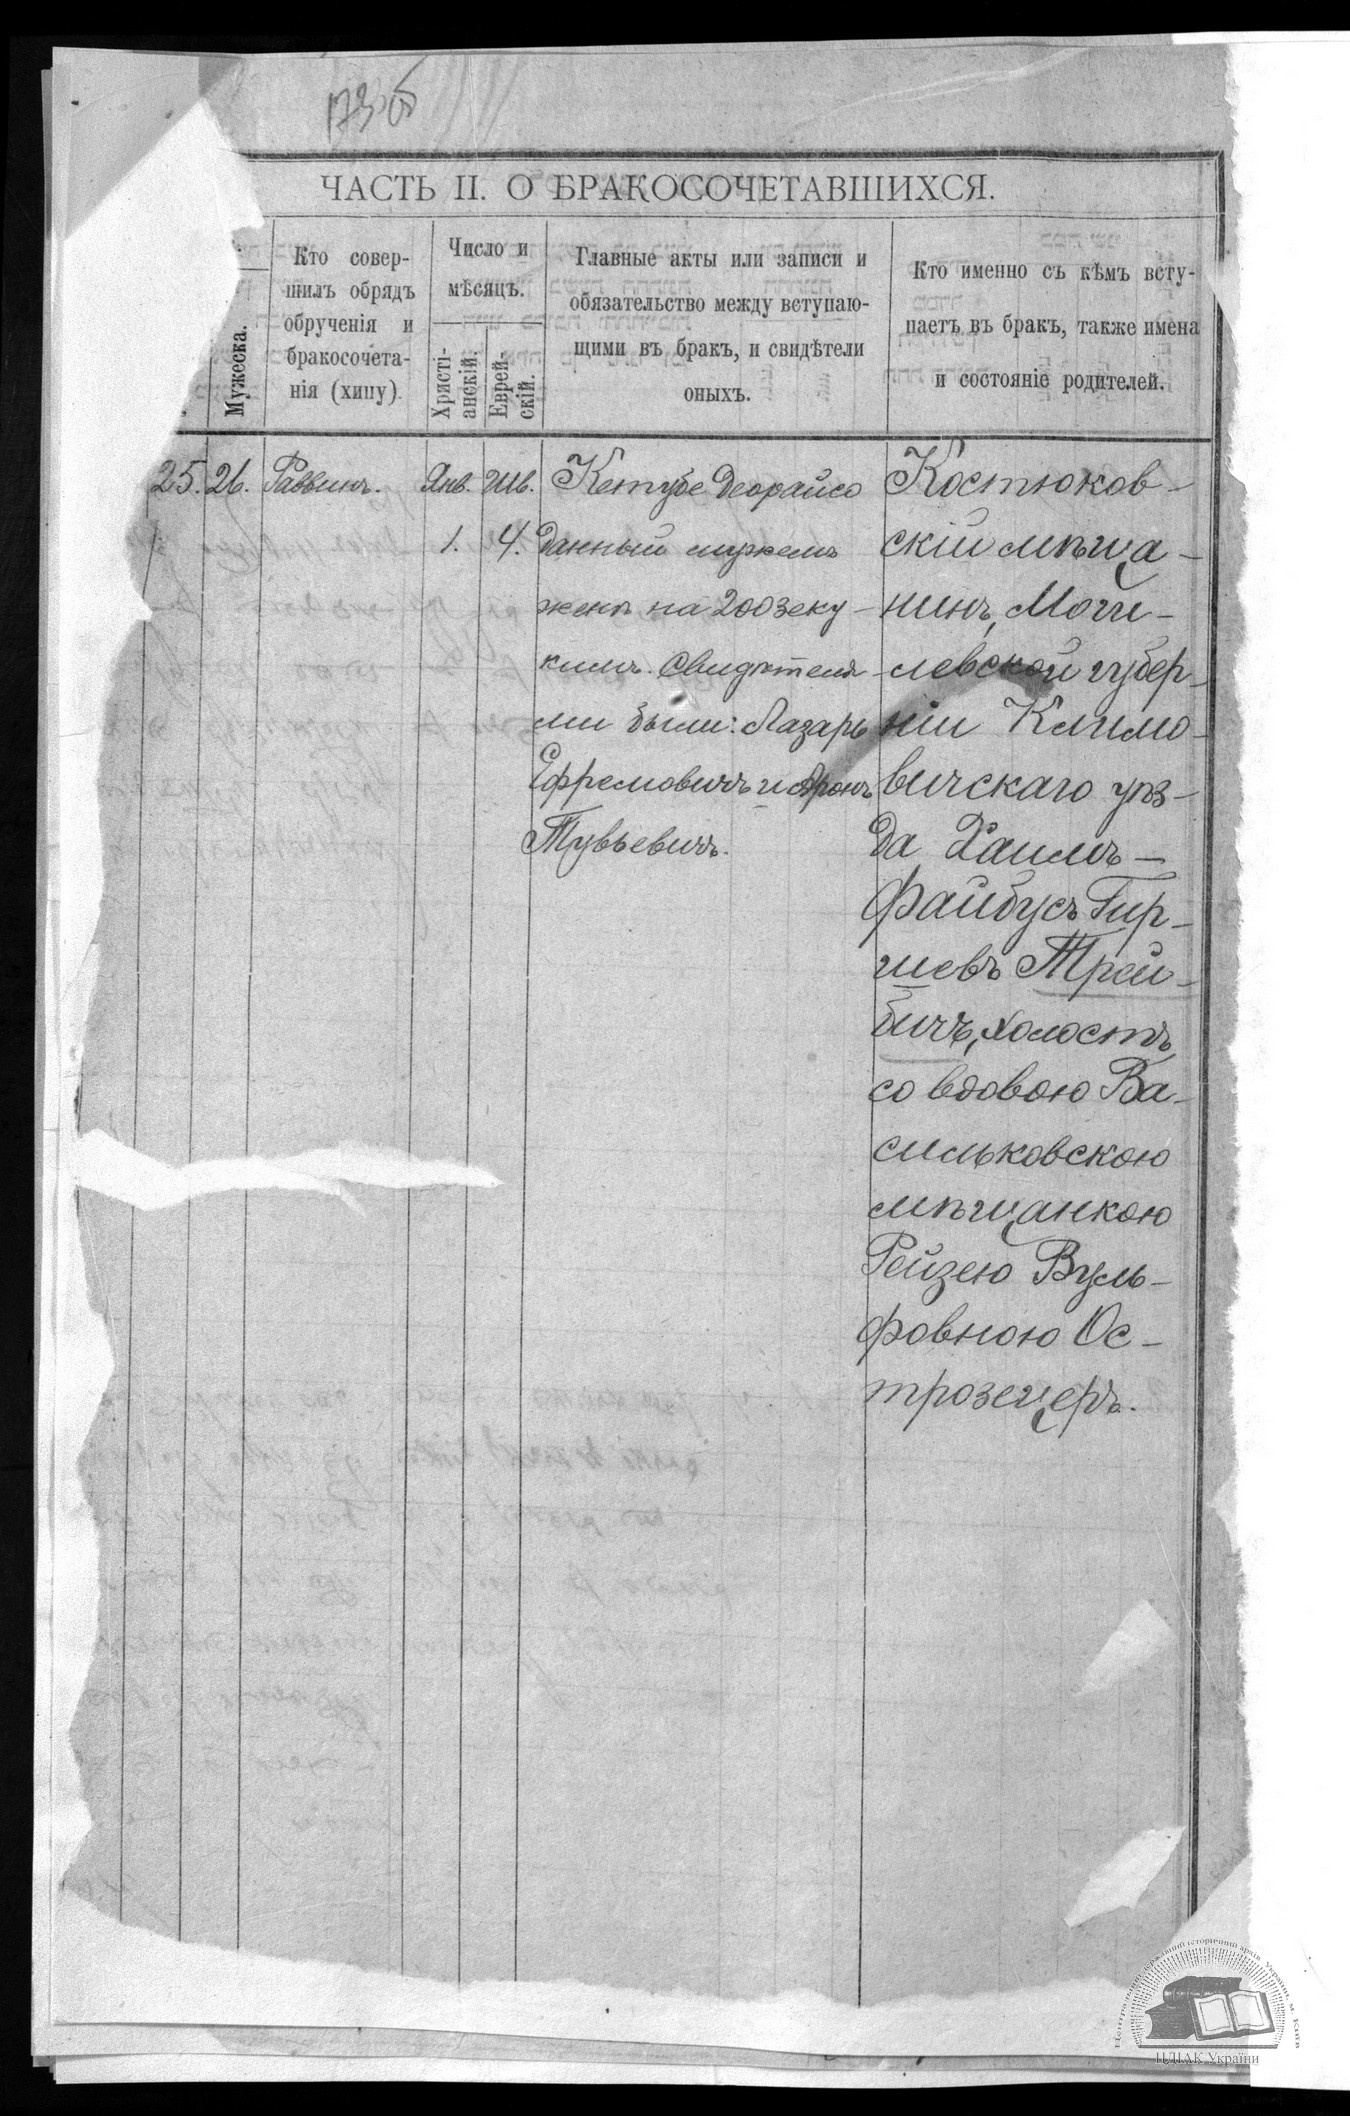 173об
ЧАСТЬ II. О БРАКОСОЧЕТАВШИХСЯ.
Мужеска.
Кто совер-
шилъ обрядъ
обрученія и
бракосочета-
нія (хипу).
Число и
мѣсяцъ.
Христі-
анскій.
Еврей-
скій.
Главные акты или записи и
обязательство между вступаю-
щими въ бракъ, и свидѣтели
оныхъ.
Кто именно съ кѣмъ всту-
паетъ въ бракъ, также имена
и состояніе родителей.
25. 26. Раввинъ. Янв. Шв.
1. 4.
Кетубе Деорайсо
данный мужемъ
женѣ на 200 зеку-
кимъ. Свидѣтеля-
ми были: Лазарь
Ефремовичъ и Аронъ
Тувьевичъ.
Костюков-
скій мѣща-
нинъ, Моги-
левской губер-
ніи Климо-
вичскаго уѣз-
да Хаимъ-
Файбусъ Гир-
шевъ Трей-
бичъ, холостъ,
со вдовою Ва-
сильковскою
мѣщанкою
Рейзею Вуль-
фовною Ос-
трозецеръ.
Центральний державний історичний архів України, м. Київ
ЦДІАК України